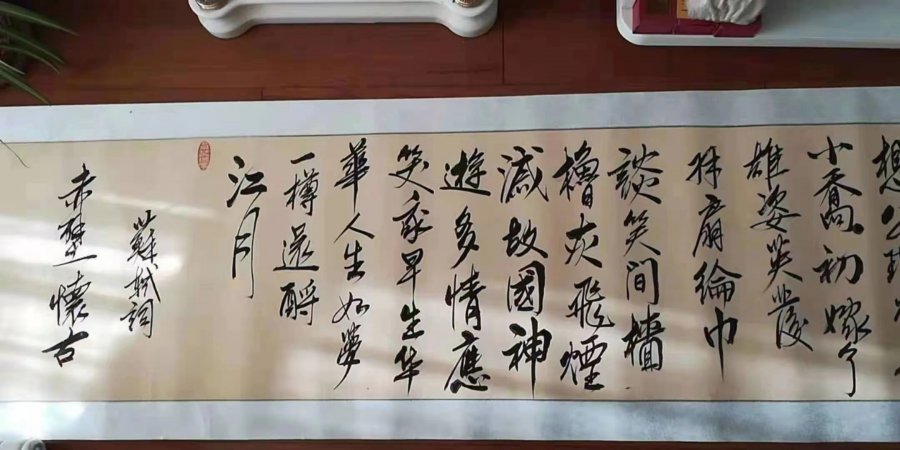 想公瑾
小喬初嫁了
雄姿英發
羽扇綸巾
談笑間檣
櫓灰飛煙
滅故國神
遊多情應
笑我早生华
華人生如夢
一樽還酹
江月
蘇軾詞
赤壁懷古